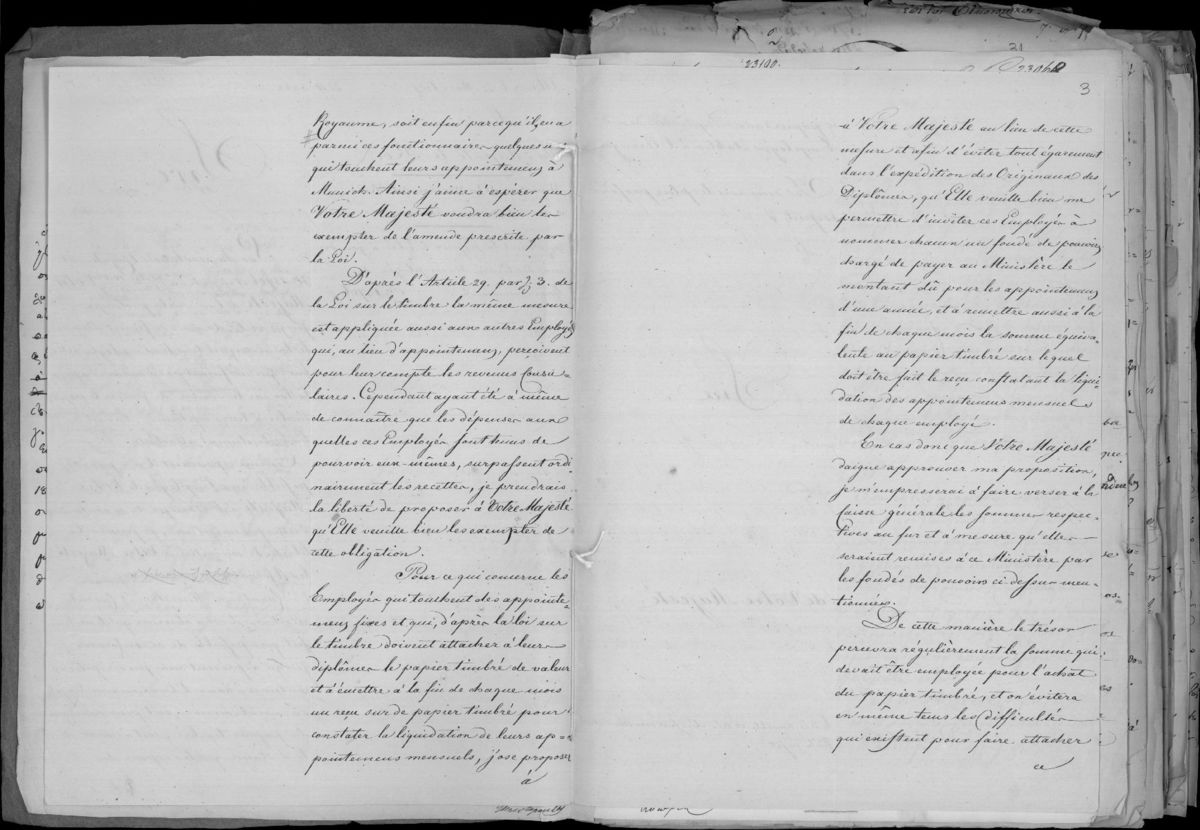 23100.
23062
3
Royaume, soit enfin parcequ'il, en a
parmi ces fonctionnaires quelques uns
qui touchent leurs appointemens à
Munich. Ainsi j'aime à espérer que
Votre Majesté voudra bien les
exempter de l'amende prescrite par
la Loi.
D'après l'Article 29. par. 3. de
la Loi sur le timbre la même mesure
est appliquée aussi aux autres Employés
qui, au lieu d'appointemens, perçoivent
pour leur compte les revenus Consu=
laires. Cependant ayant été à même
de connaître que les dépenses aux
quelles ces Employés sont tenus de
pourvoir eux-mêmes, surpassent ordi
nairement les recettes, je prendrais
la liberté de proposer à Votre Majesté
qu'Elle veuille bien les exempter de
cette obligation.
Pour ce qui concerne les
Employés qui touchent des appointe=
mens fixes et qui, d'après la loi sur
le timbre doivent attacher à leurs
diplômes le papier timbré de valeur
et à émettre à la fin de chaque mois
un reçu sur de papier timbré pour
constater la liquidation de leurs ap=
pointemens mensuels, j'ose proposer
à
à Votre Majesté au lieu de cette
mesure et afin d'éviter tout égarement
dans l'expédition des Originaux des
Diplômes, qu'Elle veuille bien me
permettre d'inviter ces Employés à
nommer chacun un fondé de pouvoirs
chargé de payer au Ministère le
montant dû pour les appointemens
d'une année, et à remettre aussi à la
fin de chaque mois la somme équiva=
lente au papier timbré sur lequel
doit être fait le reçu constatant la liqui
dation des appointemens mensuels
de chaque employé.
En cas donc que Votre Majesté
daigne approuver ma proposition,
je m'empresserai à faire verser à la
Caisse générale les sommes respec=
tives au fur et à mesure qu'elles
seraient remises à ce Ministère par
les fondés de pouvoirs ci dessus men=
tionnés.
De cette manière le trésor
percevra régulièrement la somme qui
devait être employée pour l'achat
du papier timbré, et on évitera
en même tems les difficultés
qui existent pour faire attacher
ce